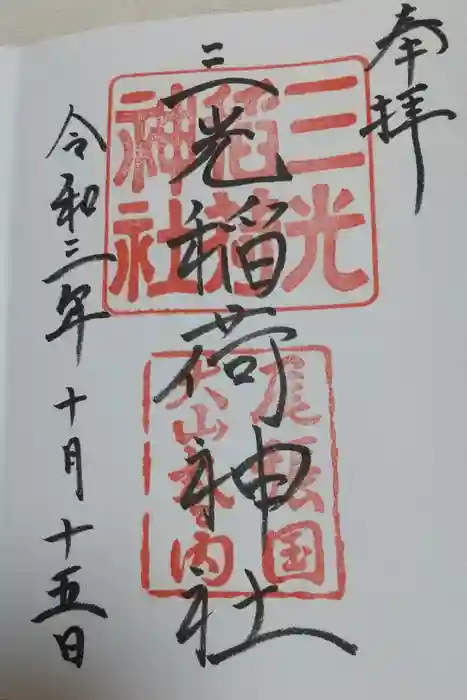 奉拝
三光稲荷神社
令和三年十月十五日
三光
稲荷
神社
尾張国
犬山城内